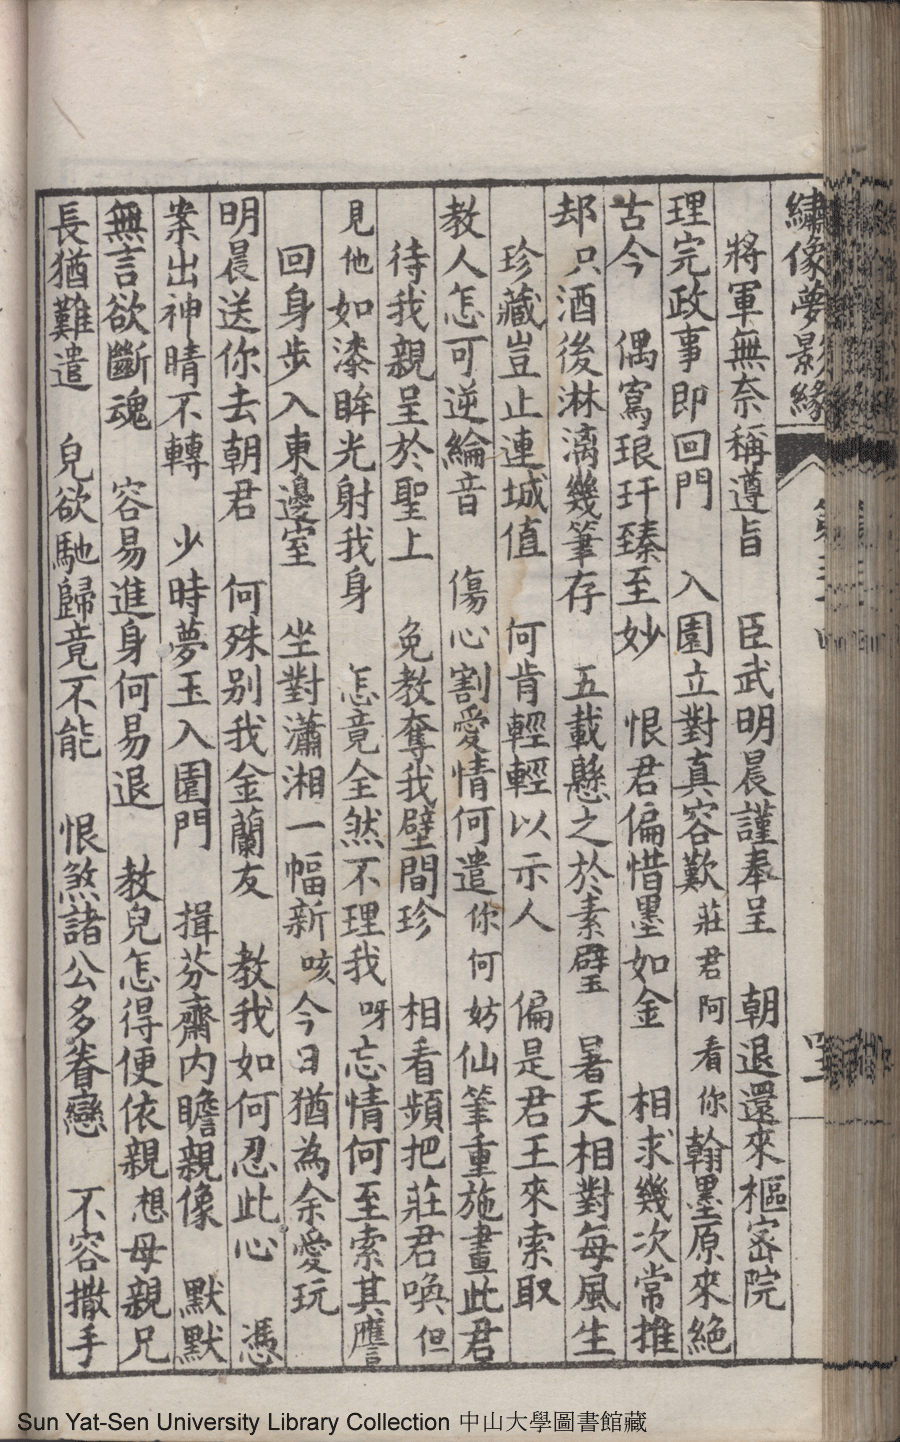 繡像夢影緣
將軍無奈稱遵旨　臣武明晨謹奉呈　朝退還來樞密院
理完政事即回門　入園立對真容歎　莊君阿看你翰墨原來絕
古今　偶寫琅玕臻至妙　恨君偏惜墨如金　相求幾次常推
却只酒後淋漓幾筆存　五載懸之於素壁　暑天相對每風生
珍藏豈止連城值　何肯輕輕以示人　偏是君王來索取
教人怎可逆綸音　傷心割愛情何遣　你何妨仙筆重施畫此君
待我親呈於聖上　免教奪我壁間珍　相看頻把莊君喚　但
見他如漆眸光射我身　怎竟全然不理我　呀忘情何至索其應
回身步入東邊室　坐對瀟湘一幅新　咳今日猶為余愛玩
明晨送你去朝君　何殊別我金蘭友　教我如何忍此心　憑
案出神睛不轉　少時夢玉入園門　揖芬齋內瞻親像　默默
無言欲斷魂　容易進身何易退　教兒怎得便依親　想母親兄
長猶難遣　兒欲馳歸竟不能　恨煞諸公多眷戀　不容撒手
Sun Yat-Sen University Library Collection 中山大學圖書館藏